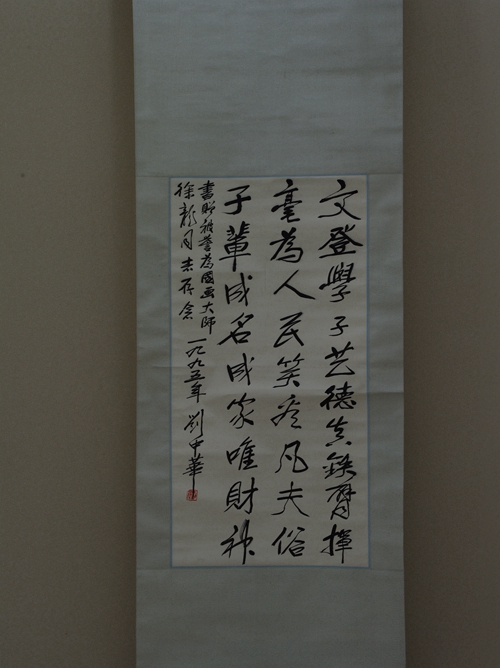 文登學子艺德真鐵臂揮
毫為人民笑看凡夫俗
子輩成名成家唯財神
書贈被誉為國画大师
徐龍同志存念 一九九五年 劉中華